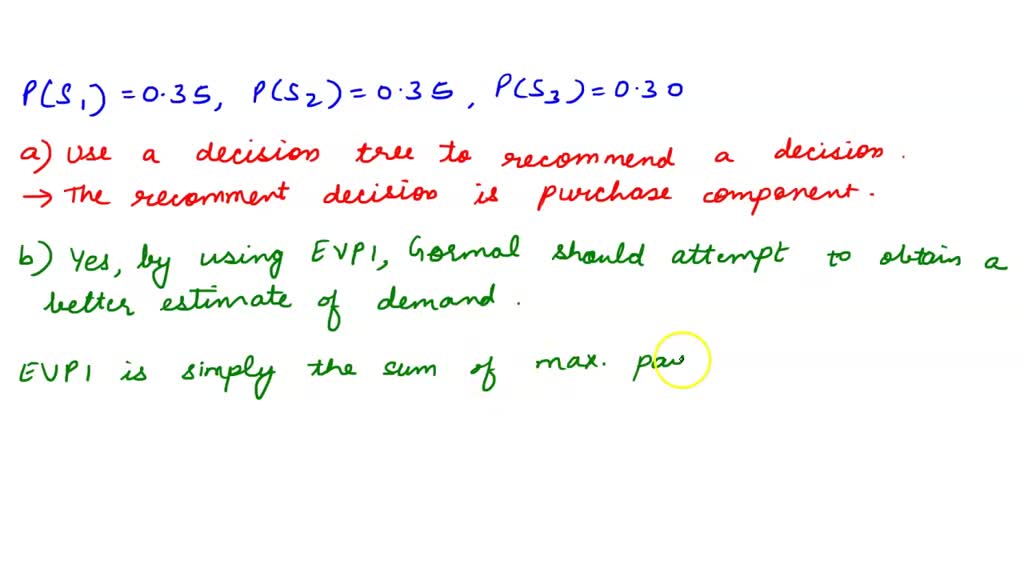 P(S1) = 0.35, P(S2) = 0.35, P(S3) = 0.30
a) Use a decision tree to recommend a decision.
→ The recomment decision is purchase component.
b) Yes, by using EVPI, Gormal should attempt to obtain a
better estimate of demand.
EVPI is simply the sum of max.